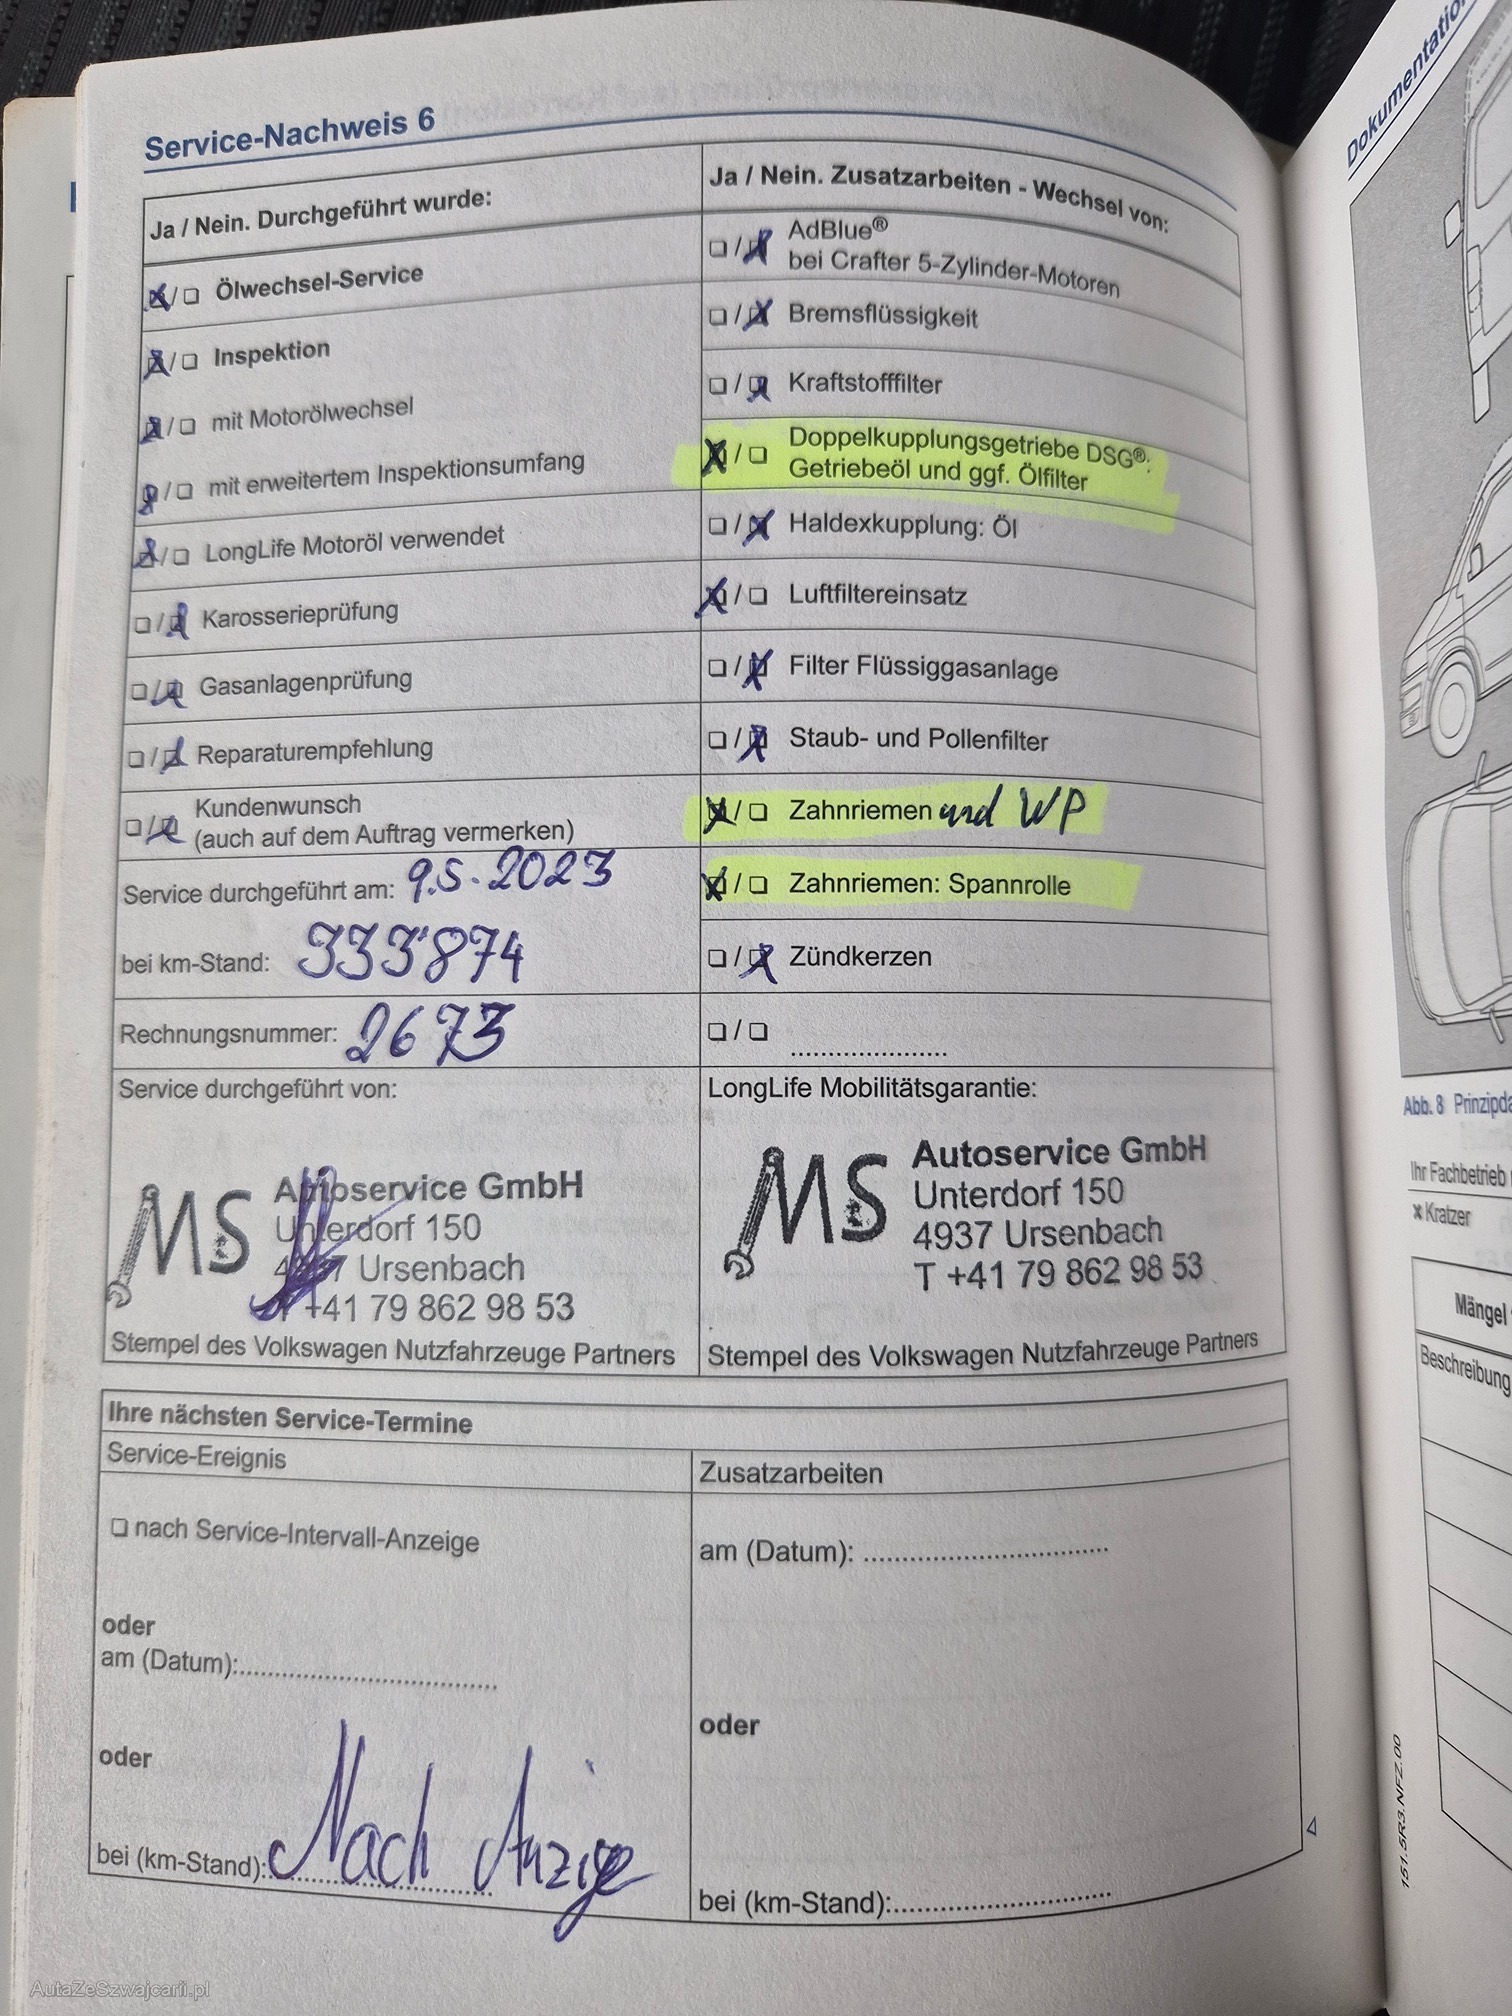 Service-Nachweis 6
Ja / Nein. Durchgeführt wurde:
Ölwechsel-Service
Inspektion
mit Motorölwechsel
mit erweitertem Inspektionsumfang
LongLife Motoröl verwendet
Karosserieprüfung
Gasanlagenprüfung
Reparaturempfehlung
Kundenwunsch
(auch auf dem Auftrag vermerken)
Service durchgeführt am: 9.5.2023
bei km-Stand: 333'874
Rechnungsnummer: 2673
Service durchgeführt von:
MS Autoservice GmbH
Unterdorf 150
4937 Ursenbach
T +41 79 862 98 53
Stempel des Volkswagen Nutzfahrzeuge Partners
Ja / Nein. Zusatzarbeiten - Wechsel von:
AdBlue®
bei Crafter 5-Zylinder-Motoren
Bremsflüssigkeit
Kraftstofffilter
Doppelkupplungsgetriebe DSG®:
Getriebeöl und ggf. Ölfilter
Haldexkupplung: Öl
Luftfiltereinsatz
Filter Flüssiggasanlage
Staub- und Pollenfilter
Zahnriemen und WP
Zahnriemen: Spannrolle
Zündkerzen
LongLife Mobilitätsgarantie:
MS Autoservice GmbH
Unterdorf 150
4937 Ursenbach
T +41 79 862 98 53
Stempel des Volkswagen Nutzfahrzeuge Partners
Ihre nächsten Service-Termine
Service-Ereignis
nach Service-Intervall-Anzeige
oder
am (Datum):
oder
bei (km-Stand): Nach Anzige
Zusatzarbeiten
am (Datum):
oder
bei (km-Stand):
151.5R3.NFZ.00
Abb. 8
Ihr Fachbetrieb
Kratzer
Mängel
Beschreibung
AutaZeSzwajcarii.pl